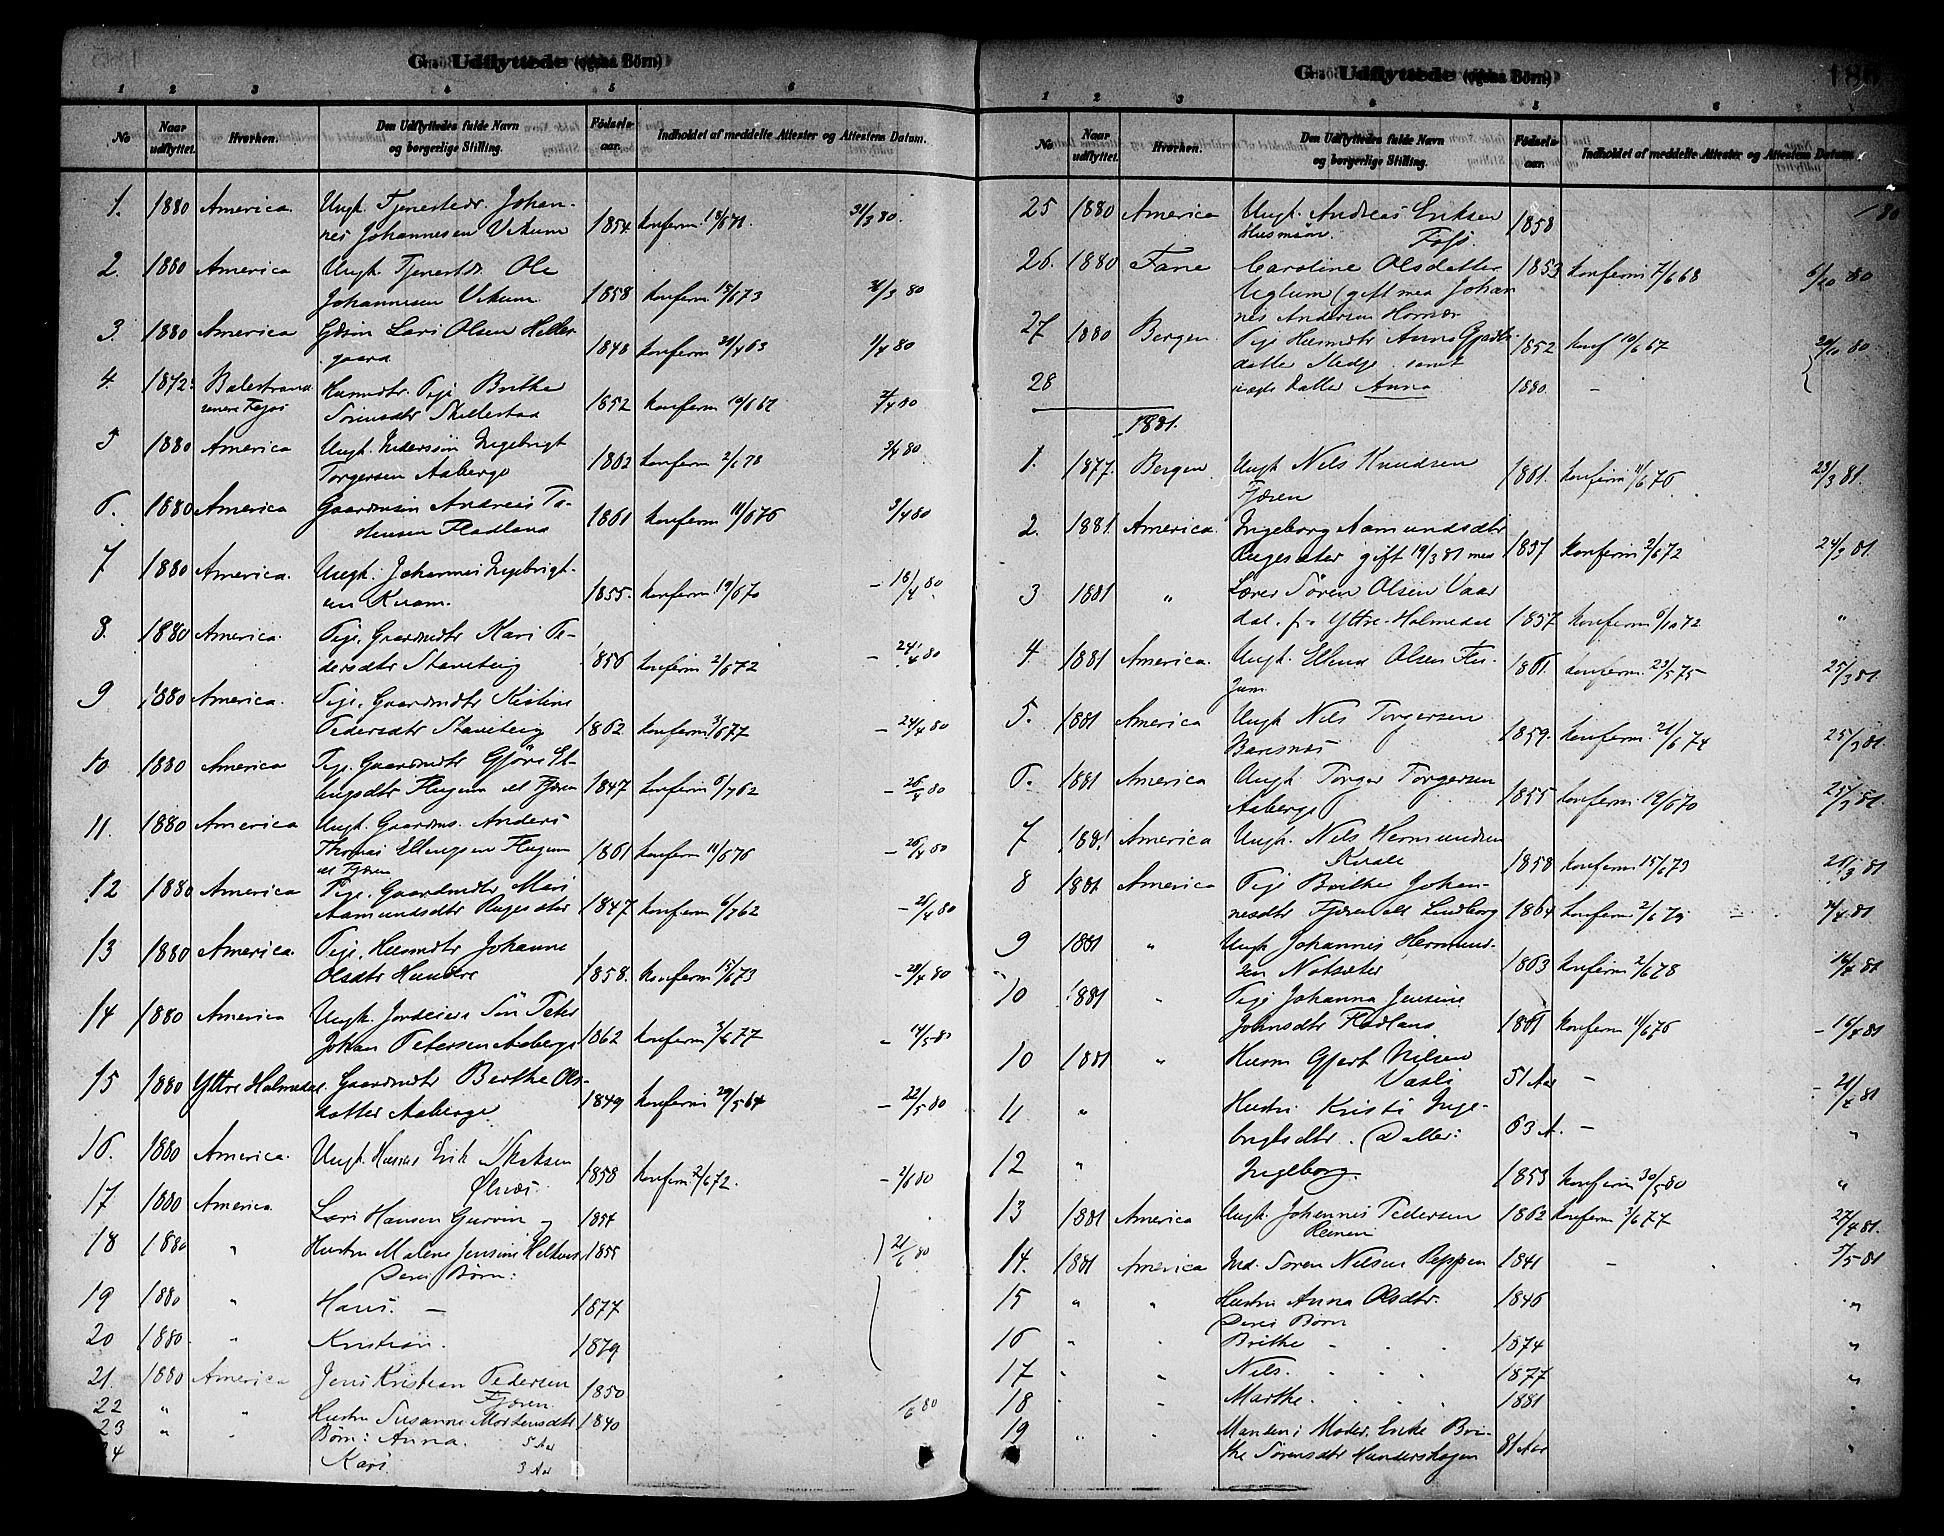 G. Udflyttede (ogsaa Börn)
1 2 3 4 5 6
No Naar udflyttet. Hvorhen. Den Udflyttedes fulde Navn og borgerlige Stilling. Födsels-aar. Indholdet af meddelte Attester og Attestens Datum.
1. 1880 America. Ungk. Tjenestedr. Johan-
nes Johannesen Vikum 1854 Konferm 18/6 71 31/3 80.
2. 1880 America Ungk. Tjenestdr. Ole
Johannesen Vikum 1858 Konferm 15/6 73 31/3 80
3. 1880 America Lars Olsen Heller-
gaard 1848 Konferm 63 1/4 80
4. 1872 Balestrand Pige Brithe
senere Fejos Sörensdtr Skillestad 1852 Konferm 2/4 80
5 1880 America Ungk. Ingebrigt
Torgersen Aaberge 1862 Konferm 2/6 78 3/4 80
6. 1880 America Gaardmsön Andreas
Fladland 1861 Konferm 11/6 76 3/4 80
7 1880 America. Ungk. Johannes Ingebrigt-
sen Kvam. 1855. Konferm 19/6 70 – 16/4 80
8. 1880 America. Pige, Gaardmdtr Kari Pe-
dersdtr Stavseteig 1856 Konferm 2/6 72 – 24/4 80
9 1880 America. Pige, Gaardmdtr Kristine
Pedersdtr Stavseteig 1862 Konferm 3/6 77 – 24/4 80
10 1880 America Pige, Gaardmdtr Gjöri El-
lingsdtr Flugum al Fjæren 1847 Konferm 6/7 62 – 26/4 80
11. 1880 America Ungk. Gaardms. Anders
Thomas Ellingsen Flugum
al Fjæren 1861 Konferm 11/6 76 – 26/4 80
12 1880 America Pige, Gaardmdtr Mari
Aamundsdtr Rugesæter 1847 Konferm 6/7 62 80
13 1880 America. Pige, Husmdtr Johanne
Olsdtr Hundere 1858. Konferm 15/6 73 – 29/4 80
14 1880 America Ungk. Jordeiers Sön Peter
Johan Petersen Aaberge 1862 Konferm 3/6 77 – 14/5 80
15 1880 Yttre Holmedal. Gaardmdtr Berthe Ols-
datter Aaberge 1849 Konferm 29/5 64 – 22/5 80
16. 1880 America. Ungk. Erik
1858 Konferm 2/6 72. – 2/6 80
17 1880 America Lars Hansen Gurvin og 1854
18 1880 " Hustru Malene Jensine 1855 21/6 80
Deres Börn:
19 1880 " Hans. – 1877
20 1880. " Kristian. 1879
21. 1880 America Jens Kristian Pedersen
Fjæren 1850
22 " " Hustru Susanne Mortensdtr 1840 1/6 80
23 " " Börn: Anna. 5 Aar
24 Kari 3 Aar
G. Udflyttede (ogsaa Börn) 186
1 2 3 4 5 6
No Naar udflyttet. Hvorhen. Den Udflyttedes fulde Navn og borgerlige Stilling. Födsels-aar. Indholdet af meddelte Attester og Attestens Datum.
25 1880 America Ungk. Andreas Eriksen
Husmsön. Foss. 1858 80
26. 1880 Fane Caroline Olsdatter 1853 Konferm 7/6 68 6/10 80
Uglum (gift med Johan
nes Andersen
27 1880 Bergen. Pige Husmdtr Anna
datter samt 1852 Konf 16/6 67 80
28 uægte Datter Anna 1880. –
1881.
1. 1877. Bergen Ungk Nels Knudsen
Fjæren 1861. Konferm 11/6 76. 23/3 81.
2. 1881. America. Ingeborg Aamundsdtr
Rugesæter gift 19/3 81 med 1857 Konferm 2/6 72 24/3 81.
3 1881 " Lærer Sören Olsen Vaar
dal. fr. Yttre-Holmedal 1857 Konferm 6/10 72 "
4 1881 America. Ungk. Ellend Olsen Flu-
gum 1861. Konferm. 23/5 75 25/3 81.
5. 1881 America Ungk Nils Torgersen
Barsnæs 1859. Konferm. 21/6 74 25/3 81.
6. 1881 America Ungk Torger Torgersen
Aaberge 1855 Konferm. 19/6 70 25/3 81.
7 1881 America Ungk. Nels Hermundsen
Kvale 1858 Konferm 15/6 73 26/3 81
8 1881 America Pige Brithe Johan-
nesdtr Fjæren al Lindborg 1864 Konferm 2/6 79 81
9 1881 " Ungk Johannes Hermund-
sen Notsæter 1863 Konferm 2/6 78 16/4 81
10 1881 " Pige Johanna Jensine
Johnsdtr Fladland 1861 Konferm 11/6 76 – 16/4 81
10 1881 " Husm Gjert Nilsen
Vasli 51 Aar – 81
11 " Hustru Kristi Inge-
brigtsdtr. Datter: 63 A. – "
12 " Ingeborg. 1853 Konferm 30/5 80 "
13 1881 America Ungk. Johannes Pedersen
1862 Konferm 3/6 77 27/4 81.
14. 1881 America Ind. Sören Nilsen Reppen 1841 – 5/5 81
15 " " Hustru Anna Olsdtr. 1846 "
Deres Börn
16 " Brithe 1874 "
17 " " Nels. 1877 "
18 " " Marthe 1881 "
19 " " Mandens Moder, Enke Bri-
the Sörensdtr Hundershagen 81 Aar "